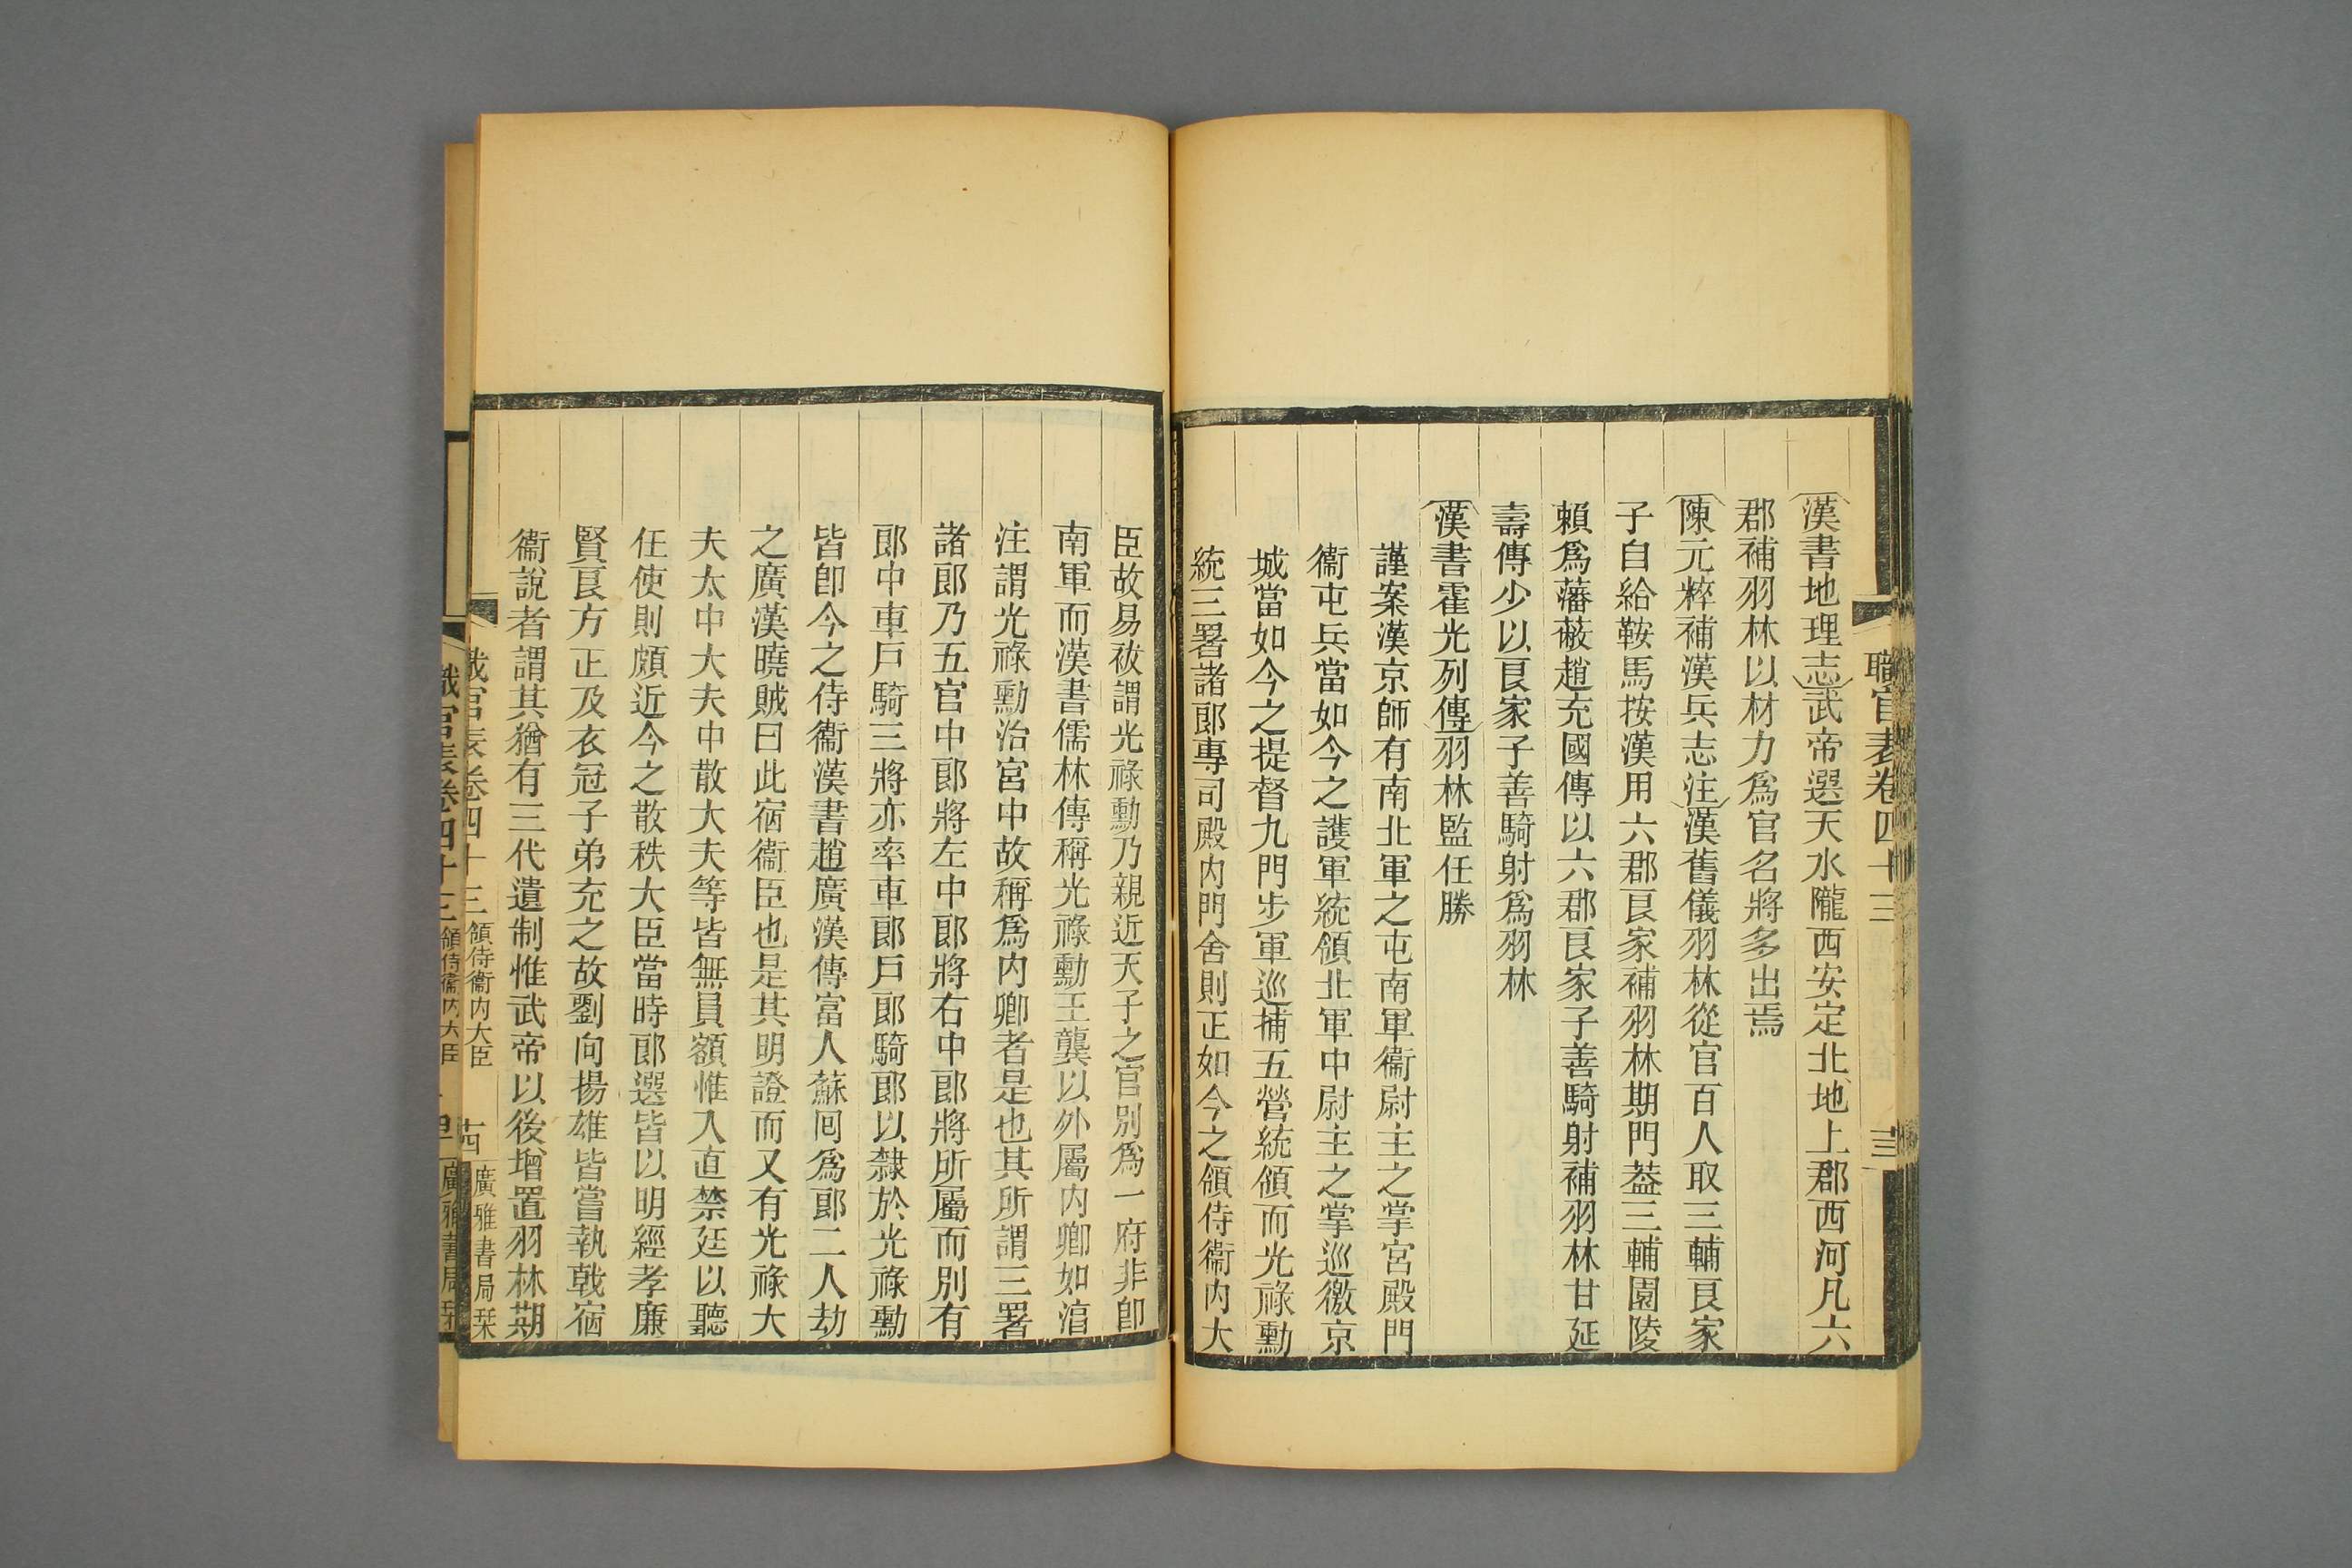 職官表卷四十三
漢書地理志武帝選天水隴西安定北地上郡西河凡六
郡補羽林以材力爲官名將多出焉
陳元粹補漢兵志注漢舊儀羽林從官百人取三輔良家
子自給鞍馬按漢用六郡良家補羽林期門葢三輔園陵
賴爲藩蔽趙充國傳以六郡良家子善騎射補羽林甘延
壽傳少以良家子善騎射爲羽林
漢書霍光列傳羽林監任勝
謹案漢京師有南北軍之屯南軍衞尉主之掌宮殿門
衞屯兵當如今之護軍統領北軍中尉主之掌巡徼京
城當如今之提督九門步軍巡捕五營統領而光祿勳
統三署諸郎專司殿內門舍則正如今之領侍衞內大
臣故易祓謂光祿勳乃親近天子之官別爲一府非卽
南軍而漢書儒林傳稱光祿勳王龔以外屬內卿如淳
注謂光祿勳治宮中故稱爲內卿者是也其所謂三署
諸郎乃五官中郎將左中郎將右中郎將所屬而別有
郎中車戶騎三將亦率車郎戶郎騎郎以隸於光祿勳
皆卽今之侍衞漢書趙廣漢傳富人蘇囘爲郎二人劫
之廣漢曉賊曰此宿衞臣也是其明證而又有光祿大
夫太中大夫中散大夫等皆無員額惟入直禁廷以聽
任使則頗近今之散秩大臣當時郎選皆以明經孝廉
賢良方正及衣冠子弟充之故劉向揚雄皆嘗執戟宿
衞說者謂其猶有三代遺制惟武帝以後增置羽林期
職官表卷四十三 領侍衞內大臣 十四 廣雅書局栞
職官表卷四十三 領侍衞內大臣 廣雅書局栞